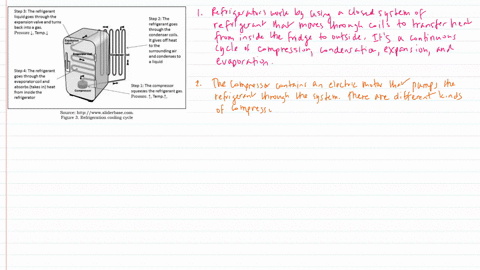 Step 3: The refrigerant
liquid goes through the
expansion valve and turns
back into a gas.
Pressure ↓, Temp ↓
Step 2: The
refrigerant goes
through the
condenser coils.
It gives off heat
to the
surrounding air
and condenses to
a liquid
Step 4: The refrigerant
goes through the
evaporator coil and
absorbs (takes in) heat
from inside the
refrigerator
Step 1: The compressor
squeezes the refrigerant gas
Pressure: ↑, Temp.↑
Source: http://www.sliderbase.com
Figure 3. Refrigeration cooling cycle
1. Refrigerators work by using a closed system of
refrigerant that moves through coils to transfer heat
from inside the fridge to outside. It's a continuous
cycle of compression, condensation, expansion, and
evaporation.
2. The compressor contains an electric motor that pumps the
refrigerant through the system. There are different kinds
of compress